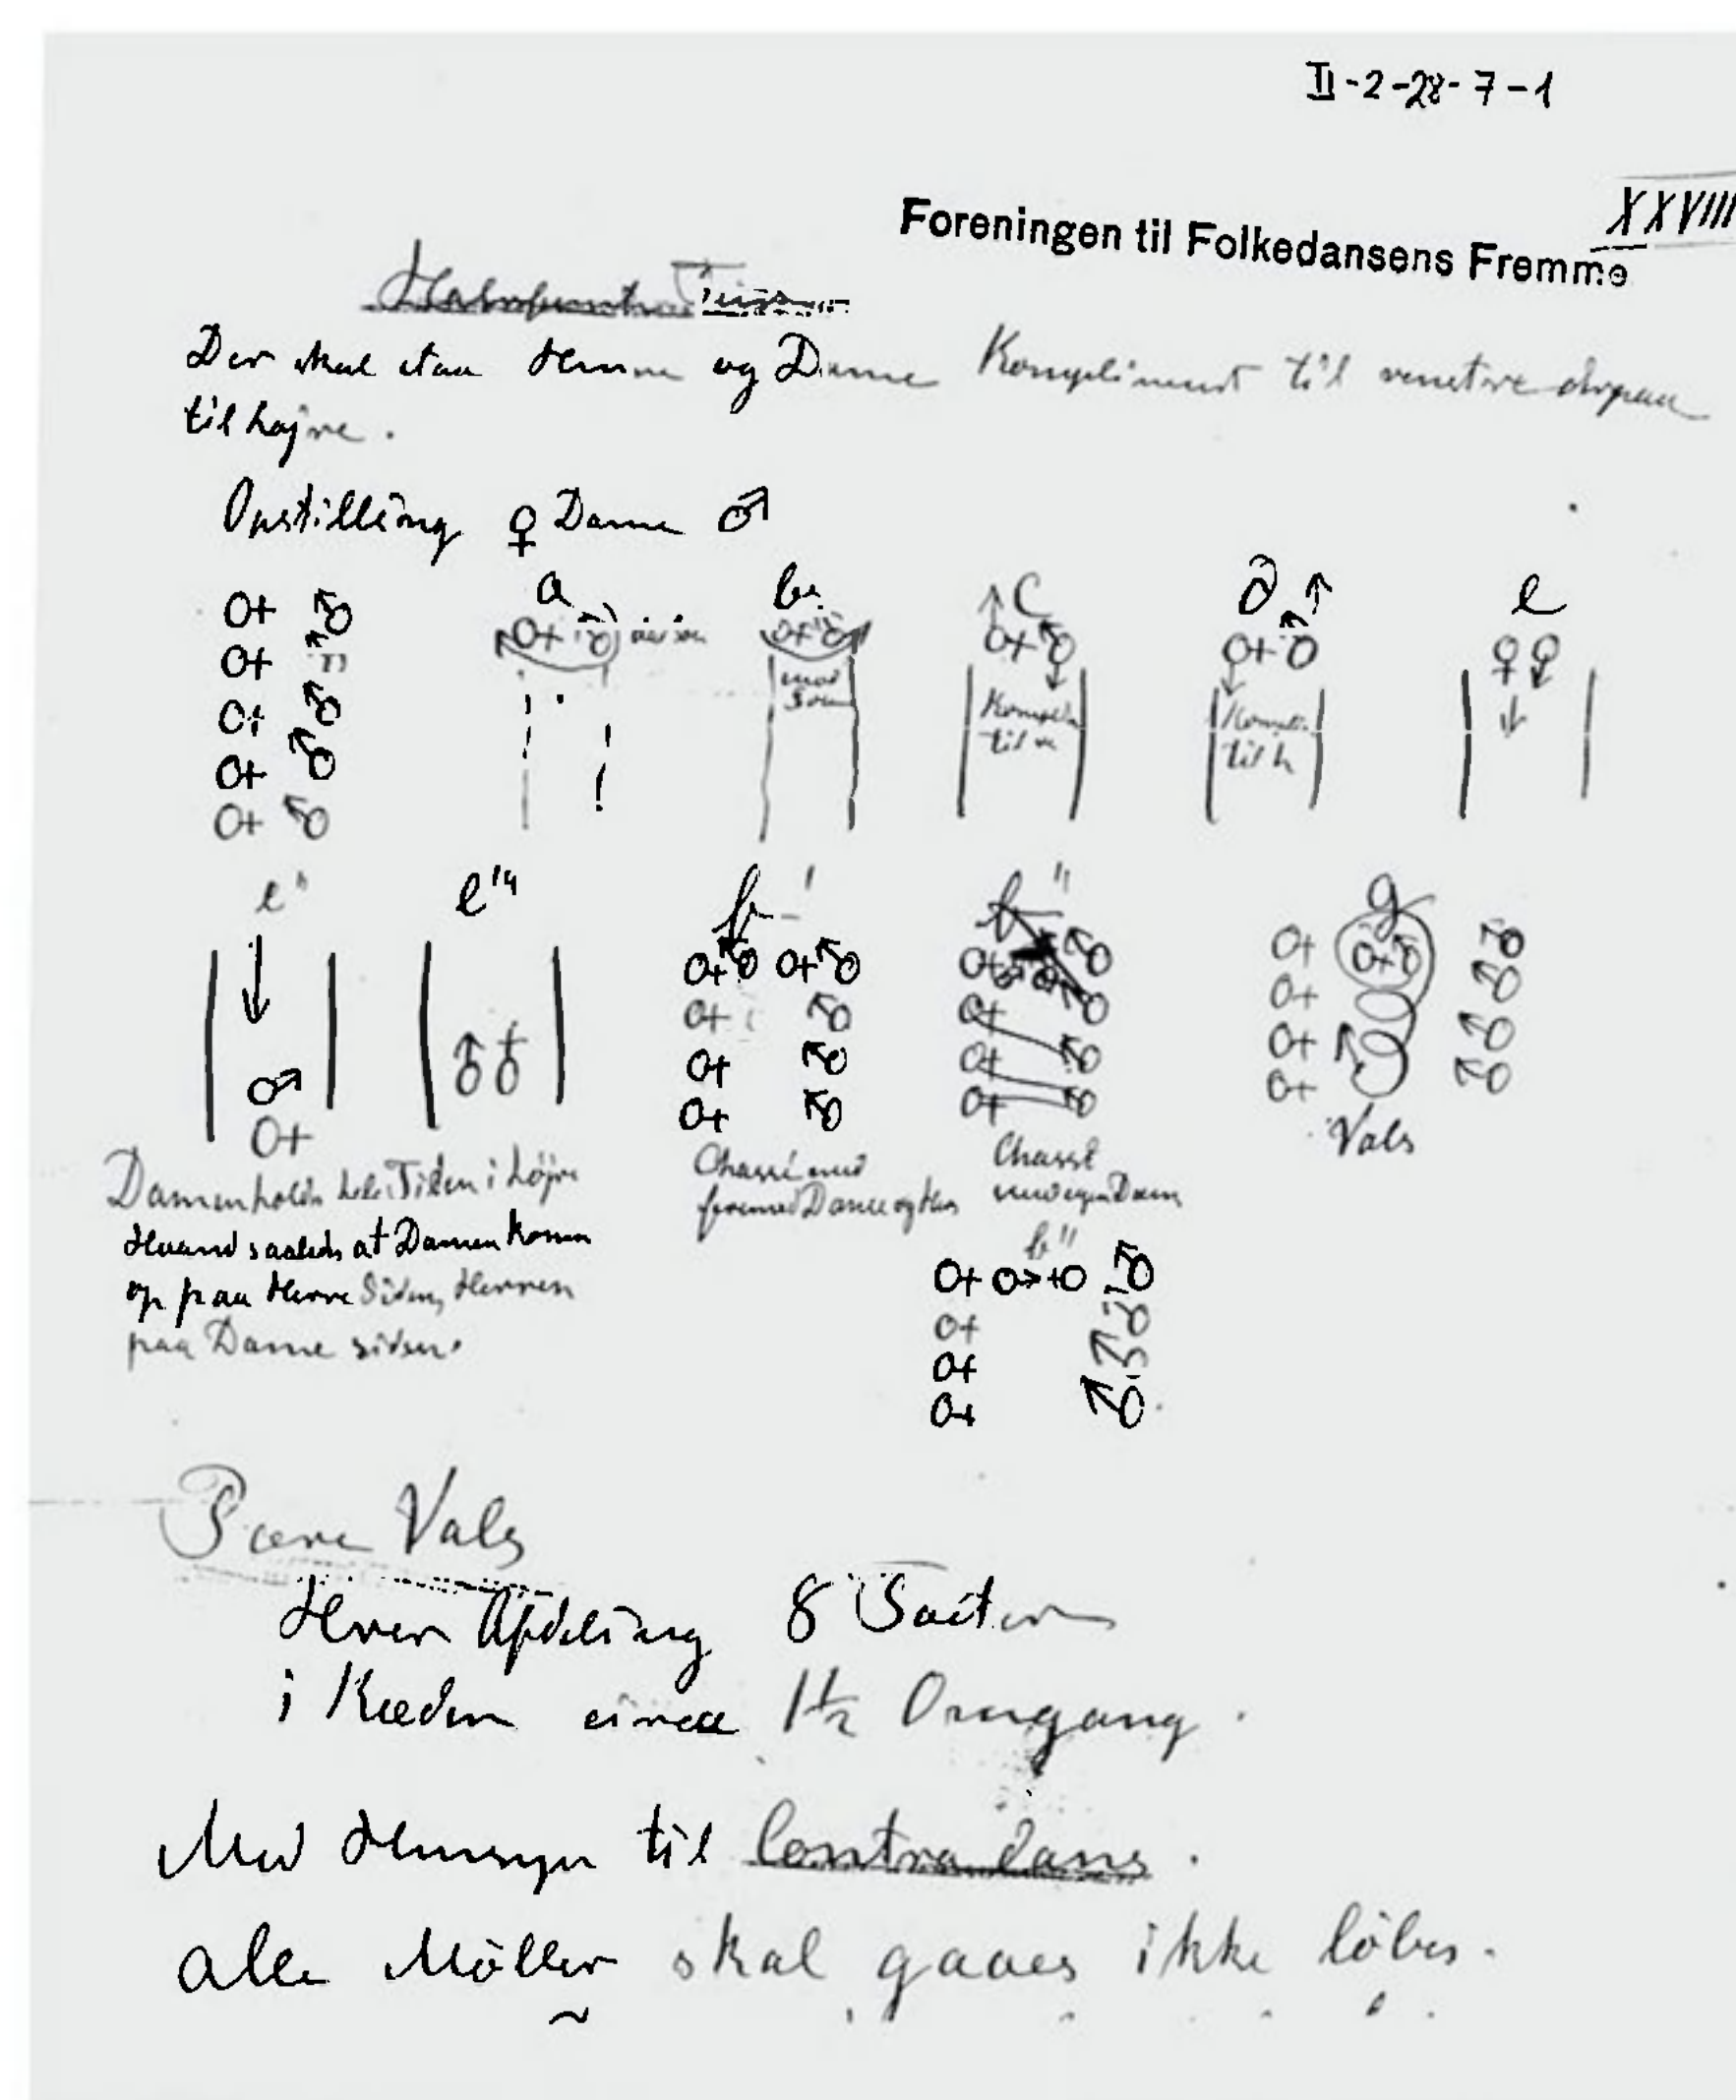 II-2-28-7-1
XXVIII
Foreningen til Folkedansens Fremme
Der skal staa Herre og Dame Kompliment til venstre derpaa
til højre.
Opstilling ♀ Dame ♂
a b. c d e
mod
Solen
Komplim
til v
Komplim.
til h
e" e''' f' f" g
Vals
Damen holdes hele Tiden i højre
Haand saaledes at Damen kommer
op paa Herre Siden, Herren
paa Dame siden.
Chassé med
fremmed Dame og Her
Chassé
med egen Dame
f"
Pære Vals
Hver Afdeling 8 Takter
i Kæden circa 1½ Omgang.
Med Hensyn til Contradans.
alle Möller skal gaaes ikke löbes.